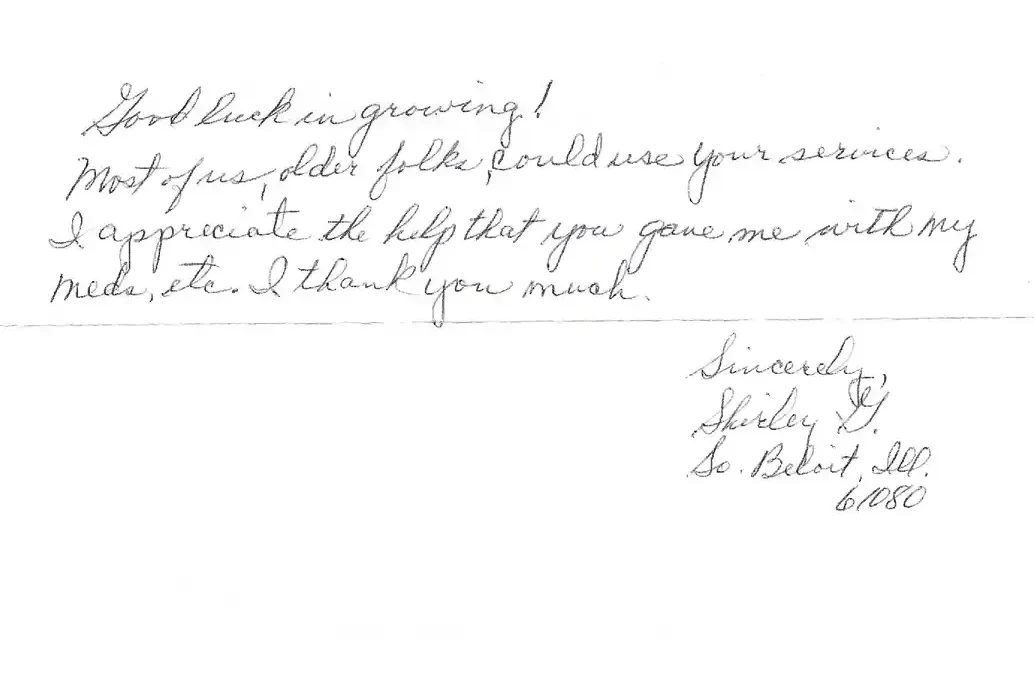 Good luck in growing!
Most of us, older folks, could use your services.
I appreciate the help that you gave me with my
meds, etc. I thank you much.
Sincerely,
Shirley G.
So. Beloit, Ill.
61080